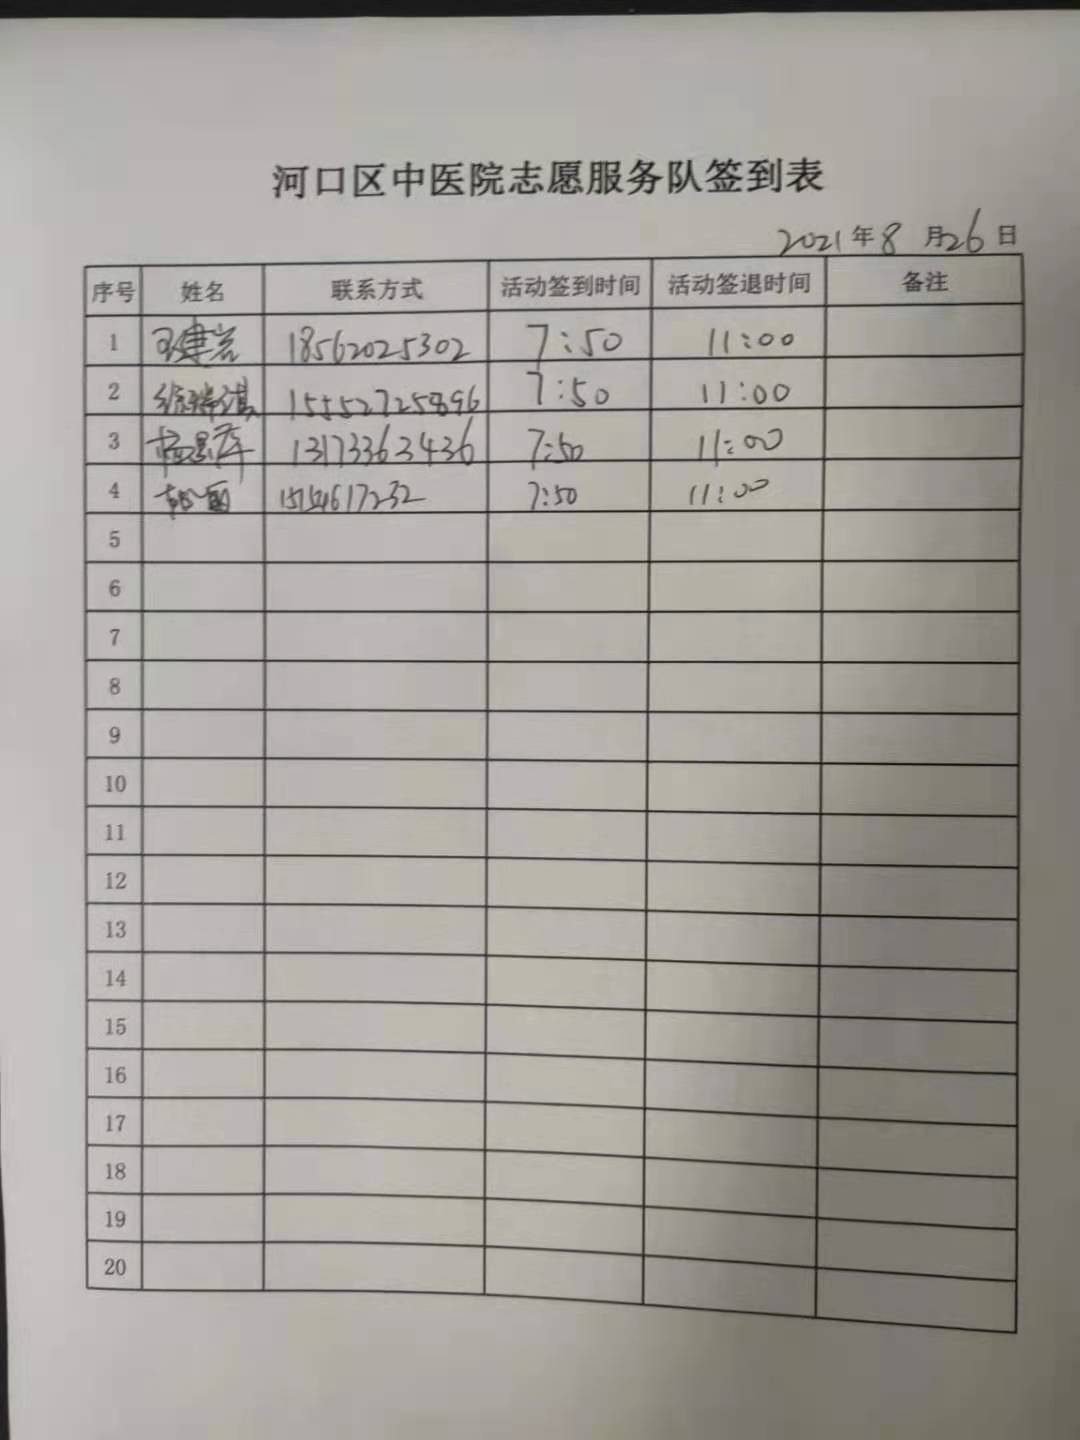 河口区中医院志愿服务队签到表
2021年8月26日
序号 姓名 联系方式 活动签到时间 活动签退时间 备注
1 王建岩 18562025302 7:50 11:00
2 徐瑞淇 15552725896 7:50 11:00
3 13173363436 7:50 11:00
4 7:50 11:00
5
6
7
8
9
10
11
12
13
14
15
16
17
18
19
20